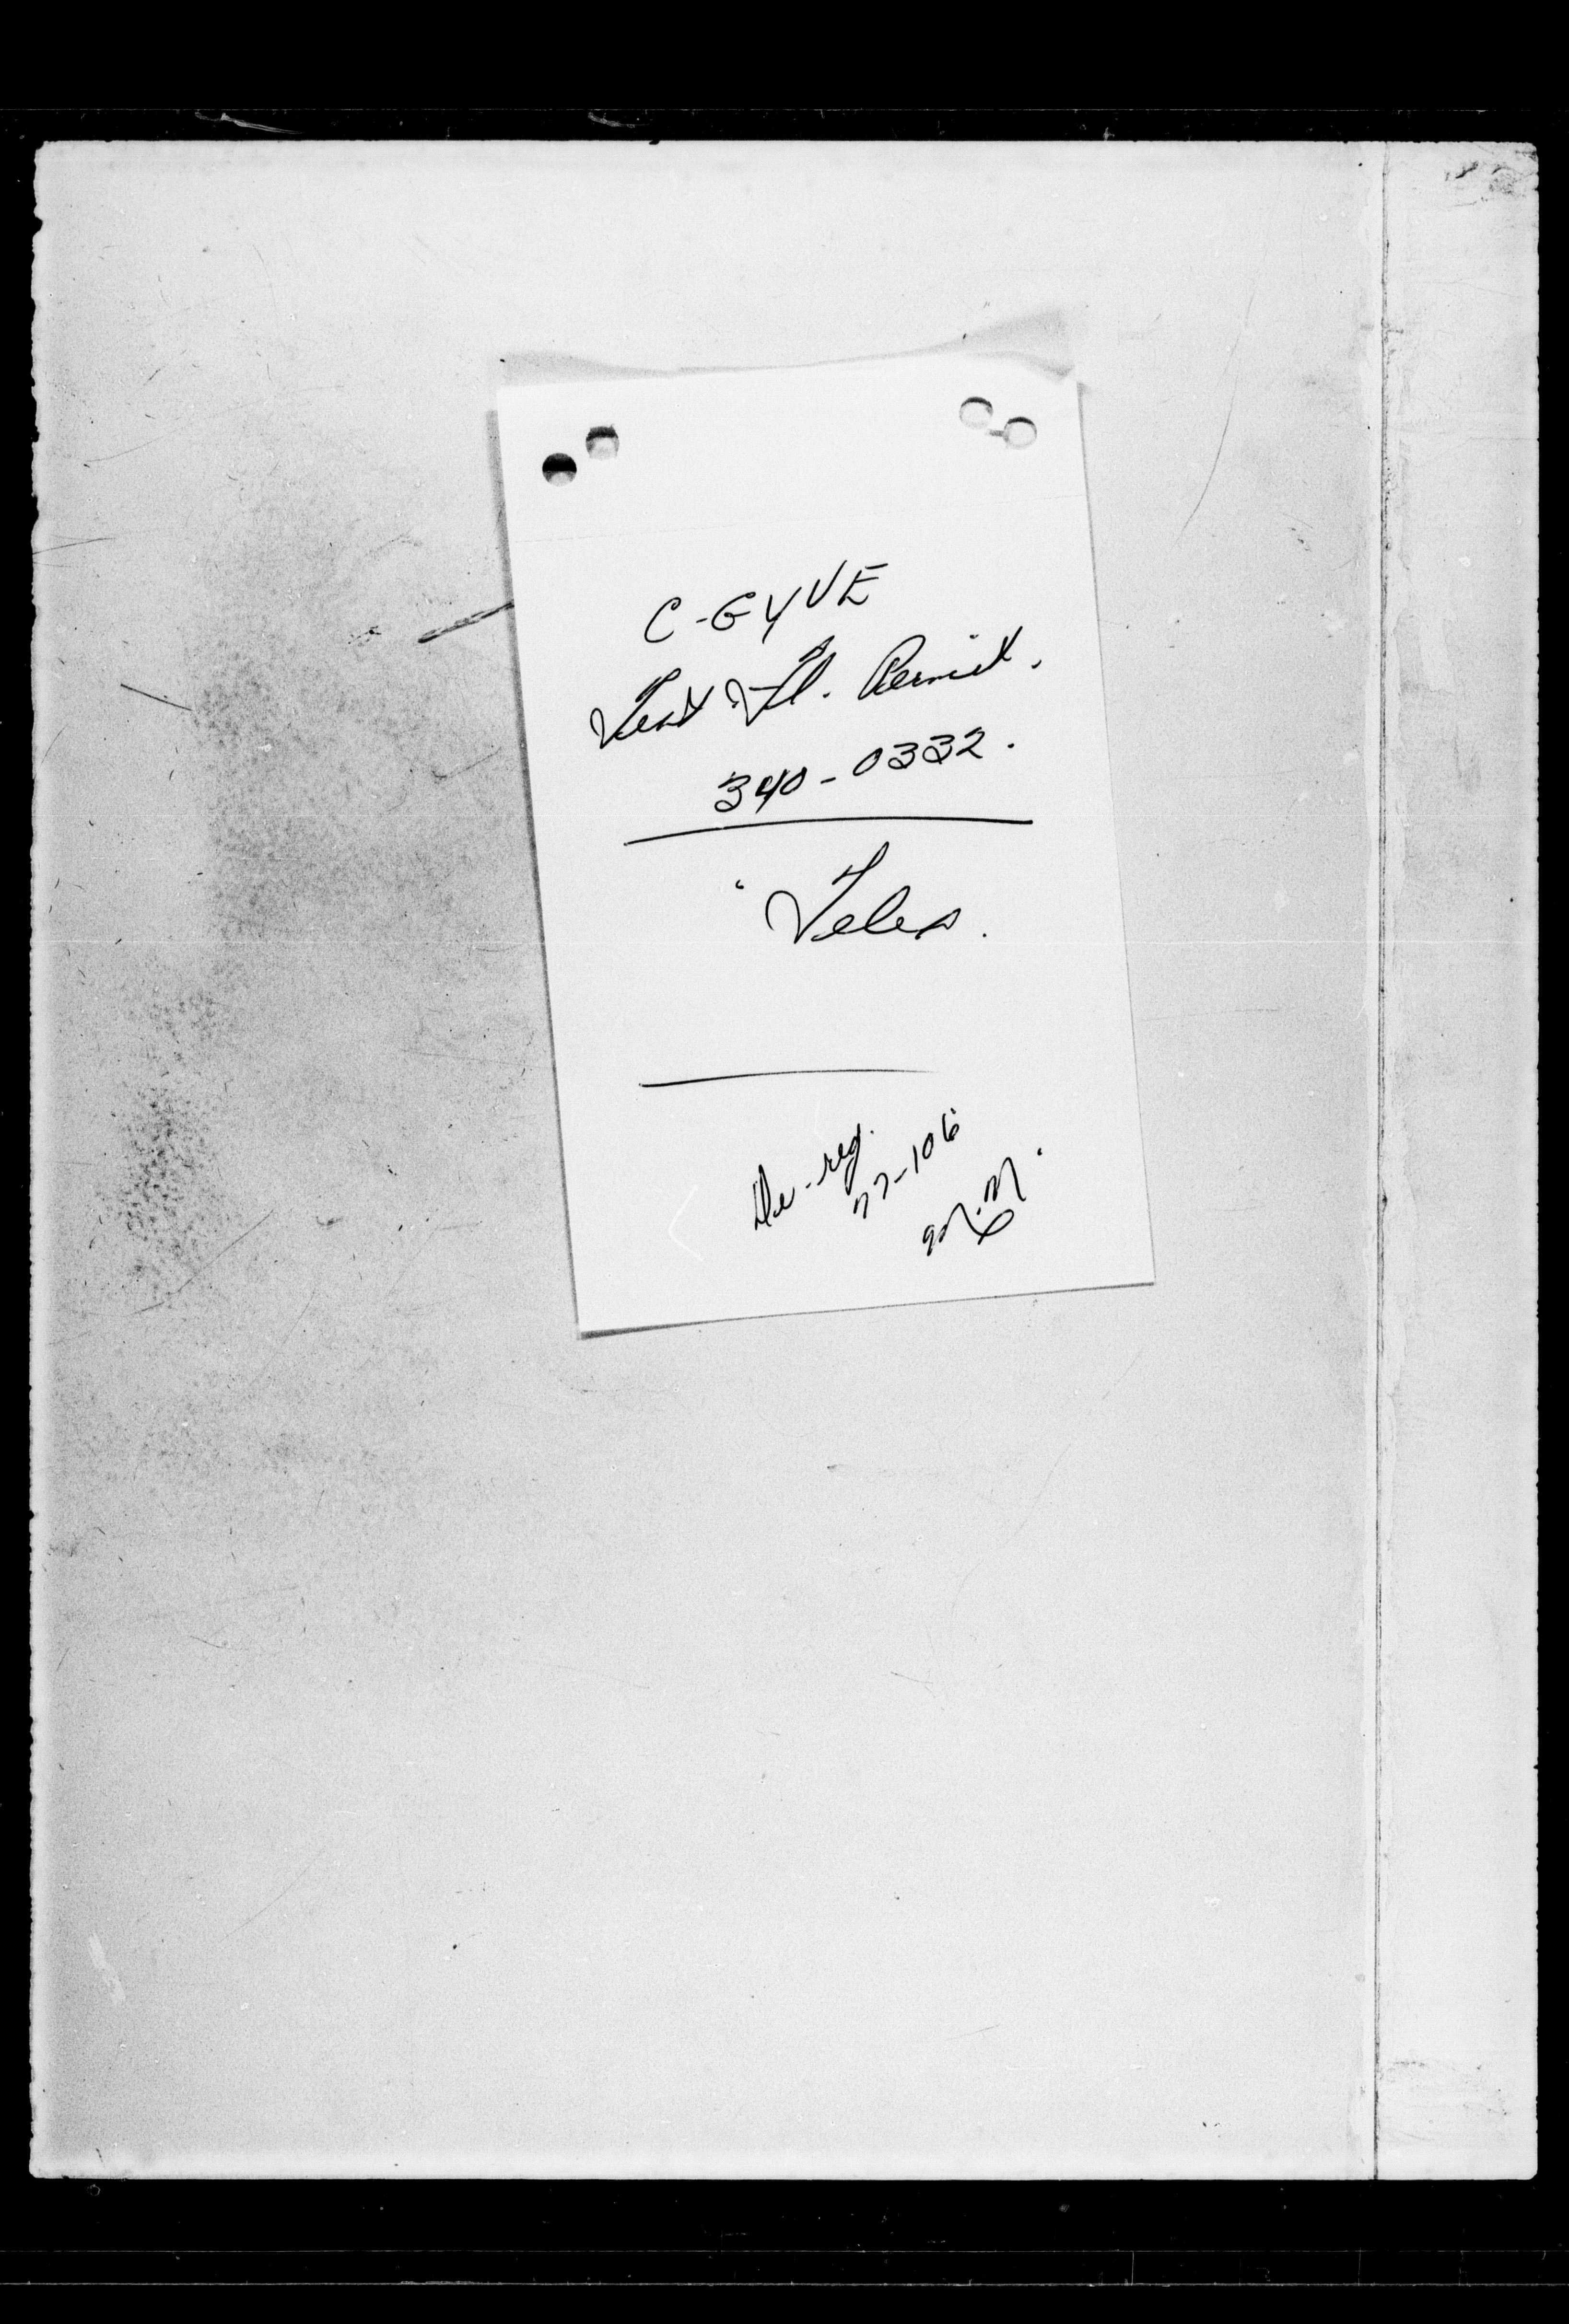 C-GYVE
Test Fl. Permit.
340-0332.
Telex.
De-reg.
77-106